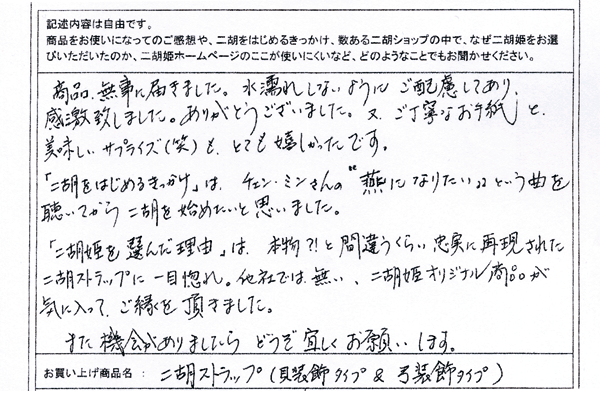 記述内容は自由です。
商品をお使いになってのご感想や、二胡をはじめるきっかけ、数ある二胡ショップの中で、なぜ二胡姫をお選
びいただいたのか、二胡姫ホームページのここが使いにくいなど、どのようなことでもお聞かせください。
商品、無事に届きました。水濡れしないように ご配慮してあり、
感激致しました。ありがとうございました。又、ご丁寧なお手紙と、
美味しいサプライズ(笑)も、とても嬉しかったです。
「二胡をはじめるきっかけ」は、チェン・ミンさんの“燕になりたい”という曲を
聴いてから 二胡を始めたいと思いました。
「二胡姫を選んだ理由」は、本物?!と間違うくらい忠実に再現された
二胡ストラップに一目惚れ。他社では無い、二胡姫オリジナル商品が
気に入って、ご縁を頂きました。
また機会がありましたら どうぞ宜しくお願いします。
お買い上げ商品名： 二胡ストラップ(貝装飾タイプ & 弓装飾タイプ)